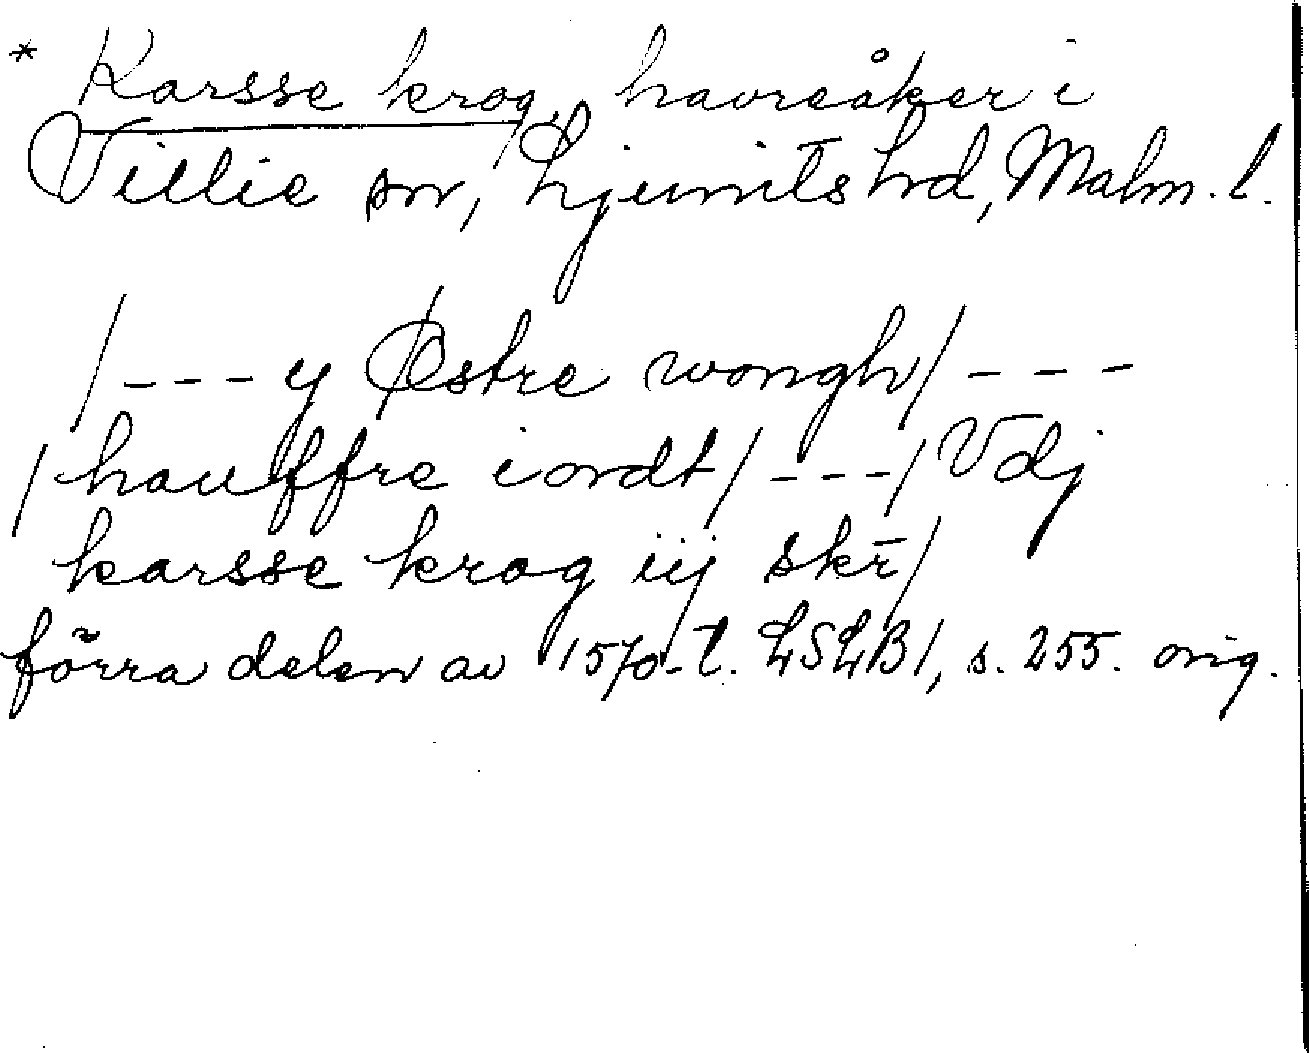 * Karsse krog, havreåker i
Villie sn, Ljunits hrd, Malm. l.
/---y Østre wongh/---
/hauffre iordt/---/Vdj
karsse krog iij skr̄/
förra delen av 1570-t. LSLB1, s. 255. orig.